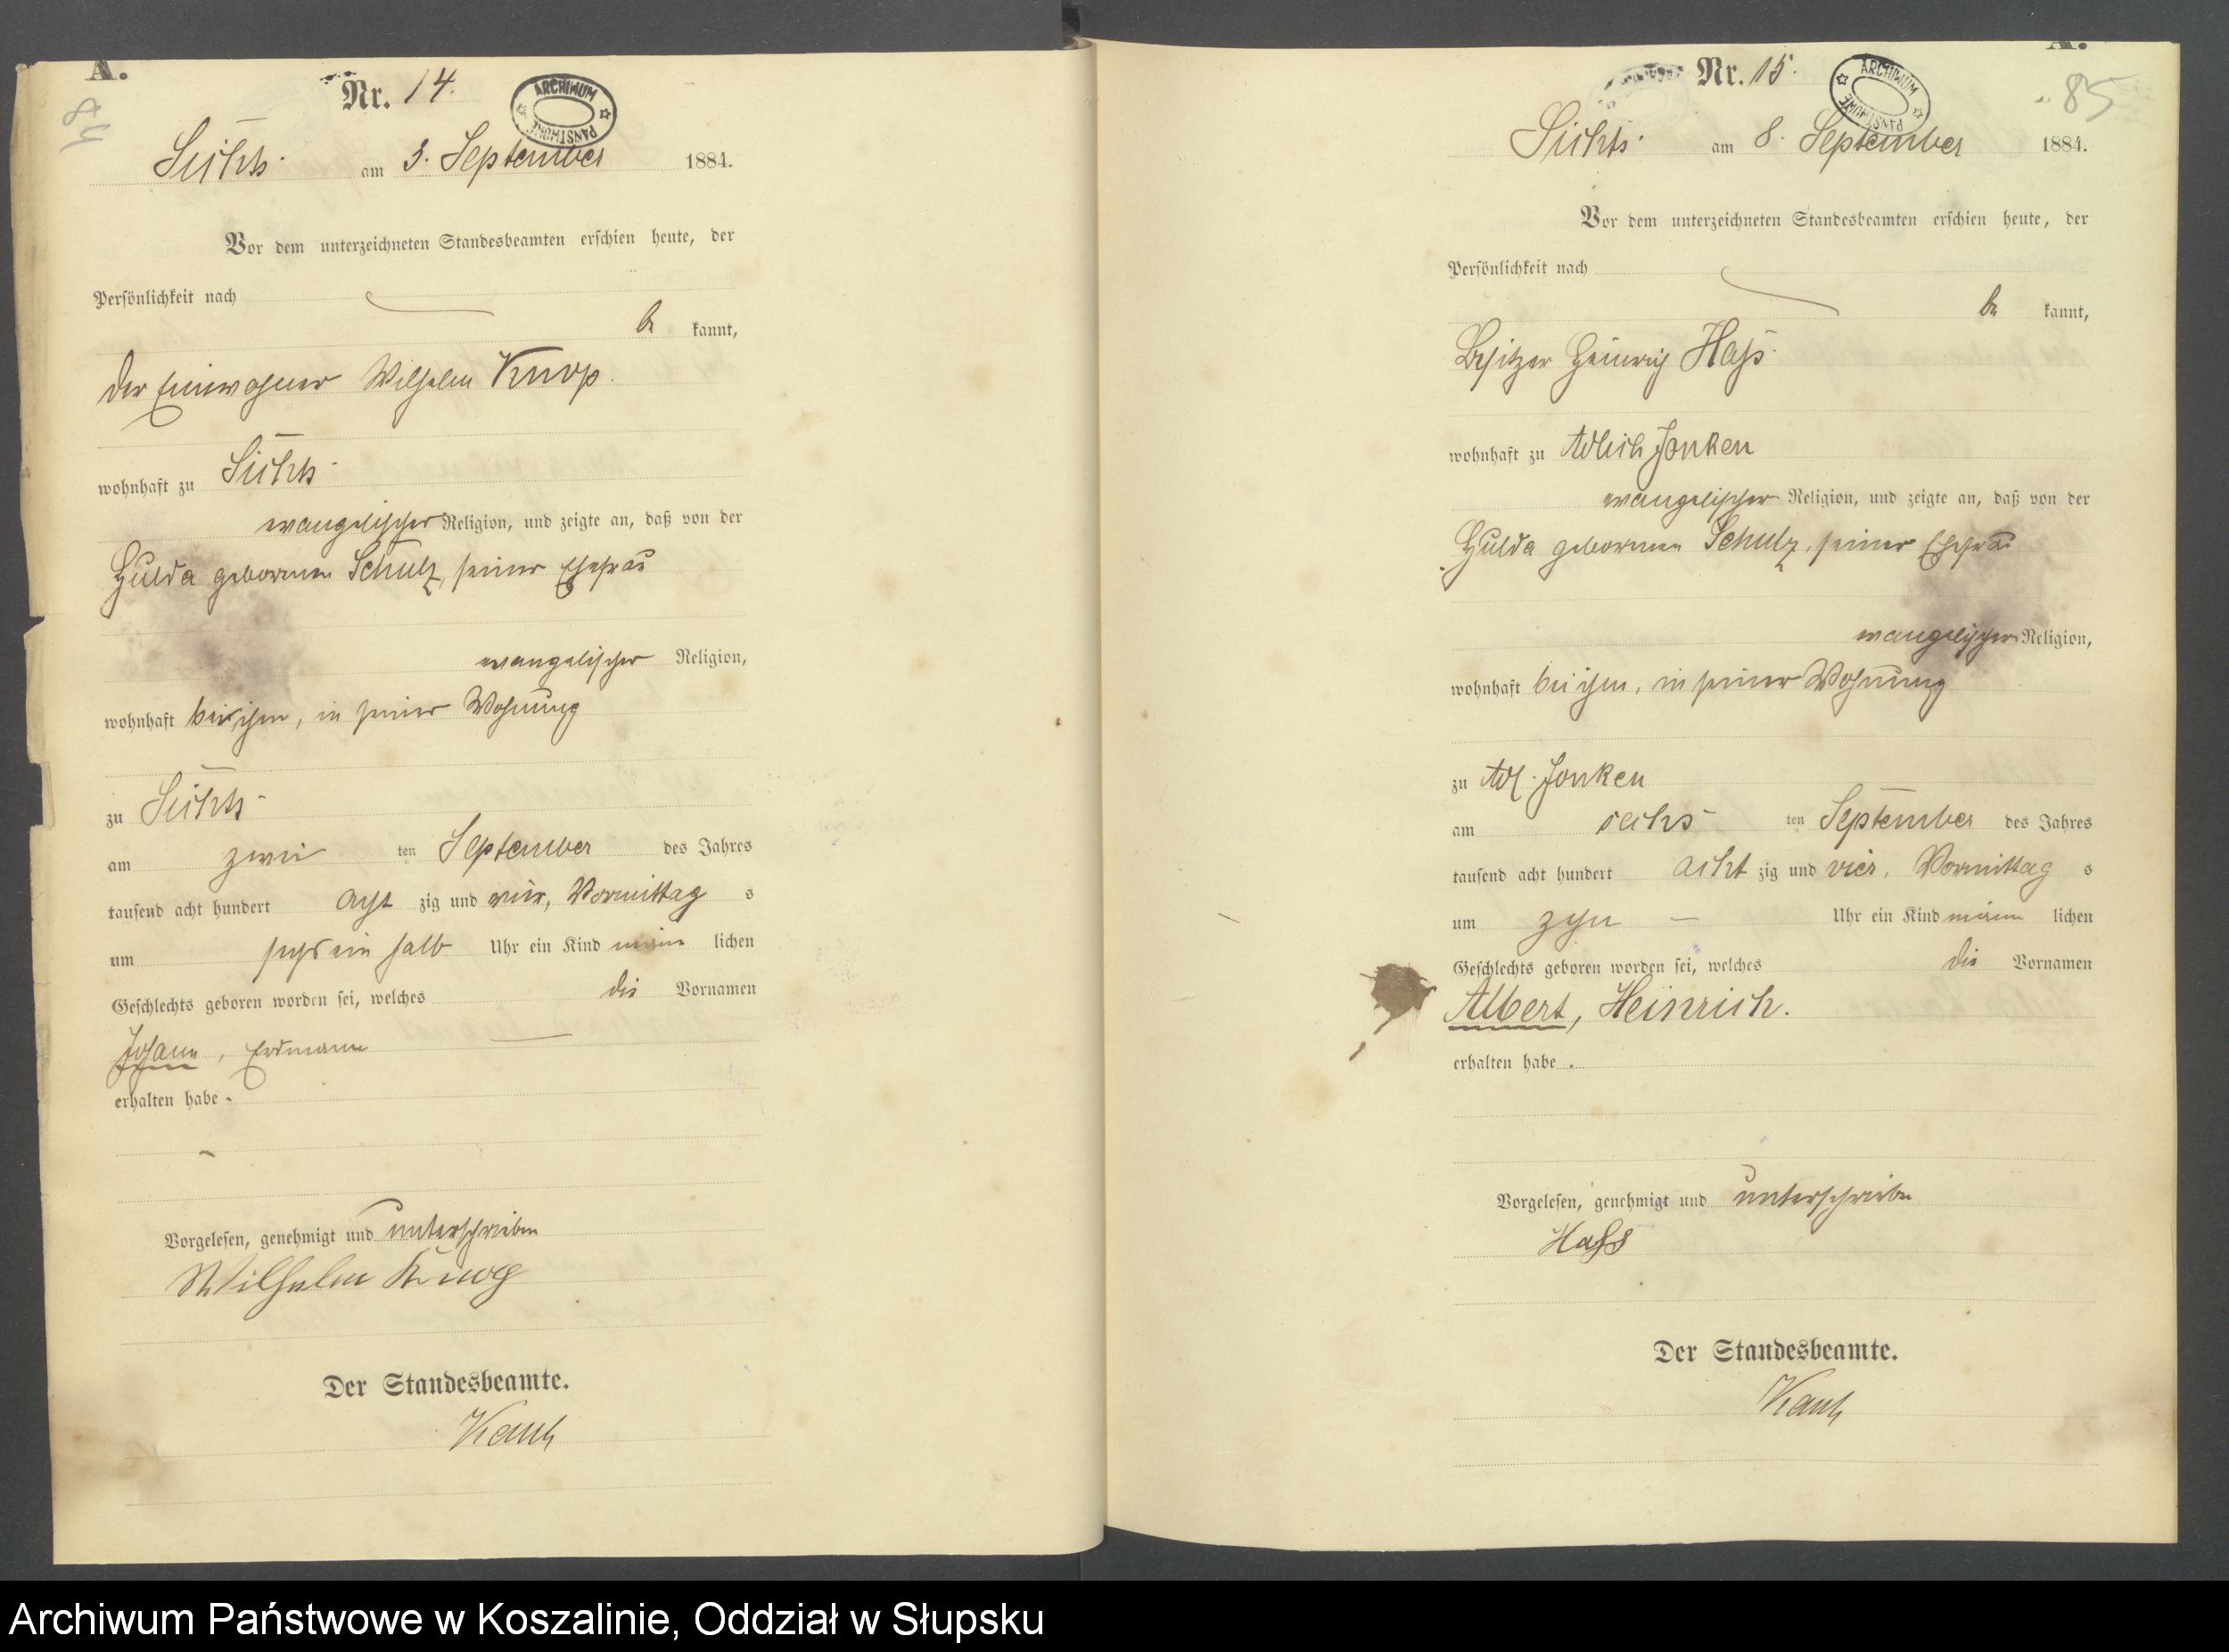 A.
Nr. 14.
ARCHIWUM PAŃSTWOWE
am 3. September 1884.
Vor dem unterzeichneten Standesbeamten erschien heute, der
Persönlichkeit nach
be kannt,
der Einwohner Wilhelm Knop
wohnhaft zu
evangelischer Religion, und zeigte an, daß von der
Hulda geborenen Schulz, seiner Ehefrau
evangelischer Religion,
wohnhaft bei ihm, in seiner Wohnung
zu
am zwei ten September des Jahres
tausend acht hundert acht zig und vier, Vormittag s
um sechs ein halb Uhr ein Kind männ lichen
Geschlechts geboren worden sei, welches die Vornamen
Johann, Erdmann
erhalten habe.
Vorgelesen, genehmigt und unterschrieben
Wilhelm Knop
Der Standesbeamte.
A.
85
Nr. 15.
ARCHIWUM PAŃSTWOWE
am 8. September 1884.
Vor dem unterzeichneten Standesbeamten erschien heute, der
Persönlichkeit nach
be kannt,
Besitzer Heinrich Hass
wohnhaft zu Adlich Jonken
evangelischer Religion, und zeigte an, daß von der
Hulda geborenen Schulz, seiner Ehefrau
evangelischer Religion,
wohnhaft bei ihm, in seiner Wohnung
zu Adl. Jonken
am sechs ten September des Jahres
tausend acht hundert acht zig und vier, Vormittag s
um zehn Uhr ein Kind männ lichen
Geschlechts geboren worden sei, welches die Vornamen
Albert, Heinrich.
erhalten habe.
Vorgelesen, genehmigt und unterschrieben
Hass
Der Standesbeamte.
Archiwum Państwowe w Koszalinie, Oddział w Słupsku